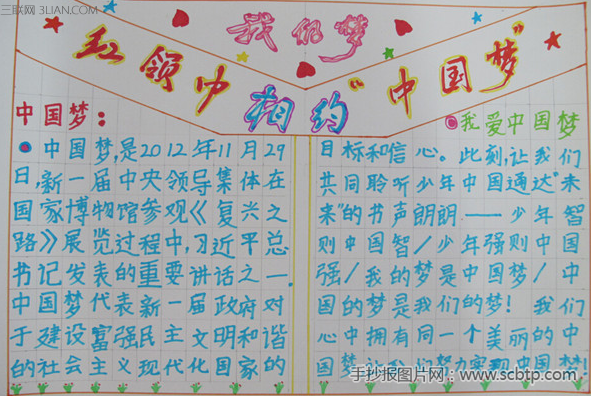 三联网 3LIAN.COM
我们梦
红领巾相约“中国梦”
中国梦：
中国梦,是2012年11月29
日,新一届中央领导集体在
国家博物馆参观《复兴之
路》展览过程中,习近平总
书记发表的重要讲话之一.
中国梦代表新一届政府对
于建设富强民主文明和谐
的社会主义现代化国家的
我爱中国梦
目标和信心。此刻,让我们
共同聆听少年中国通达“未
来”的书声朗朗——少年智
则中国智/少年强则中国
强/我的梦是中国梦/中
国的梦是我们的梦！我们
心中拥有同一个美丽的中
国梦让我们努力实现中国梦！
手抄报图片网：www.scbtp.com